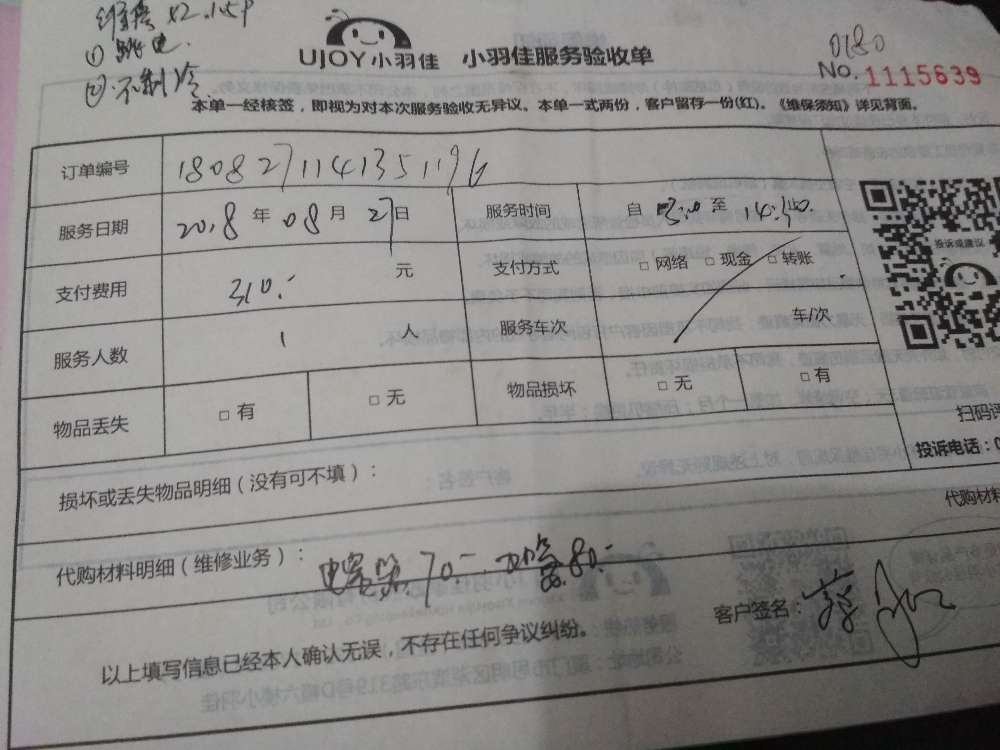 维修 X2. 1.5P
① 跳电.
② 不制冷
UJOY小羽佳 小羽佳服务验收单
0180
No. 1115639
本单一经核签，即视为对本次服务验收无异议。本单一式两份，客户留存一份(红)。《维保须知》详见背面。
订单编号 1808271141351196
服务日期 2018 年 08 月 27 日 服务时间 自 至 14:30.
支付费用 310.- 元 支付方式 □ 网络 □ 现金 □ 转账
服务人数 1 人 服务车次 车/次
物品丢失 □ 有 □ 无 物品损坏 □ 无 □ 有
投诉或建议
扫码
投诉电话：0
损坏或丢失物品明细（没有可不填）：
代购材料
代购材料明细（维修业务）： 70.- 80.-
客户签名：
以上填写信息已经本人确认无误，不存在任何争议纠纷。